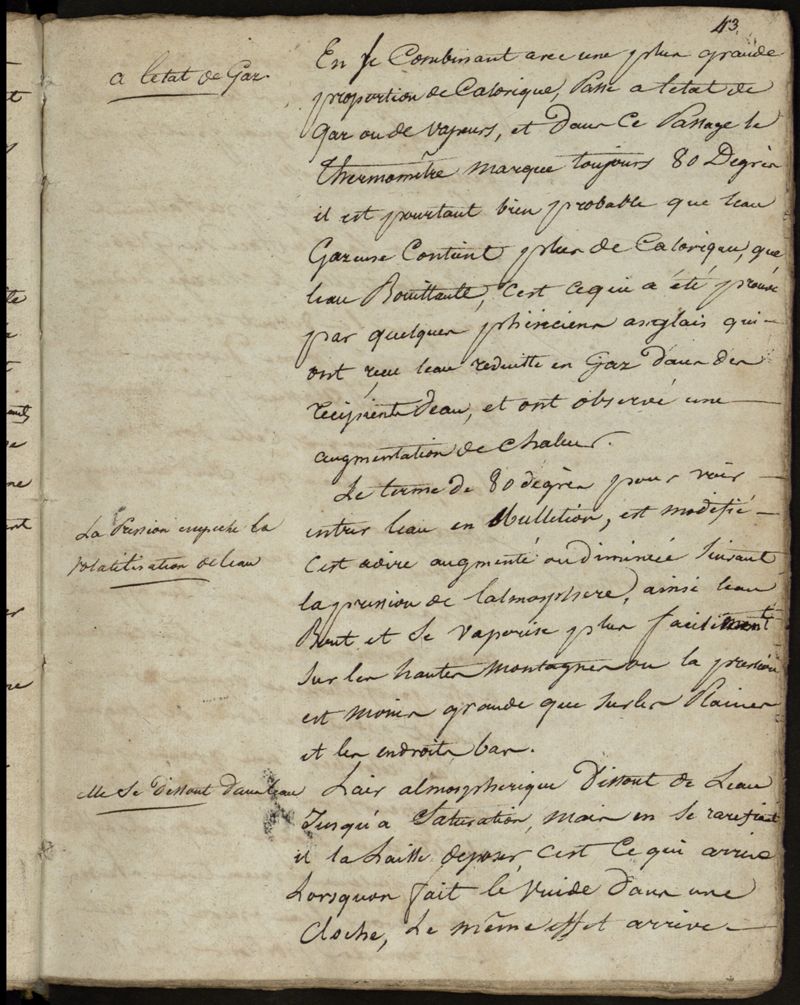 43
a letat de Gaz.
En se Combinant avec une plus grande
proportion de Calorique, Passe a letat de
Gaz ou de vapeurs, et Dans Ce Passage le
thermomêtre marque toujours 80 Degrés
il est pourtant bien probable que leau
Gazeuse Contient plus de Calorique, que
leau Bouillante, C'est cequi a été prouvé
par quelques phisiciens anglais qui-
ont reçu leau reduitte en Gaz dans des
récipients d'eau, et ont observé une-
augmentation de chaleur.
Le terme de 80 degrés pour voir-
La Pression empeche la
volatilisation de leau
entrer leau en Ebulletion, est modifié-
C'est adire augmenté ou diminué Suivant
la pression de latmosphere, ainsi leau
Bout et Se vaporise plus facilement
Sur les hautes montagnes ou la pression
est moins grande que sur les Plaines
et les endroits bas.
elle Se Dissout dans leau
Lair atmospherique Dissout de Leau
Jusqu'a Saturation, mais en Se rarefiant
il la Laisse deposer, c'est Ce qui arrive
Lorsquon fait le vuide Dans une
Cloche, Le même effet arrive-